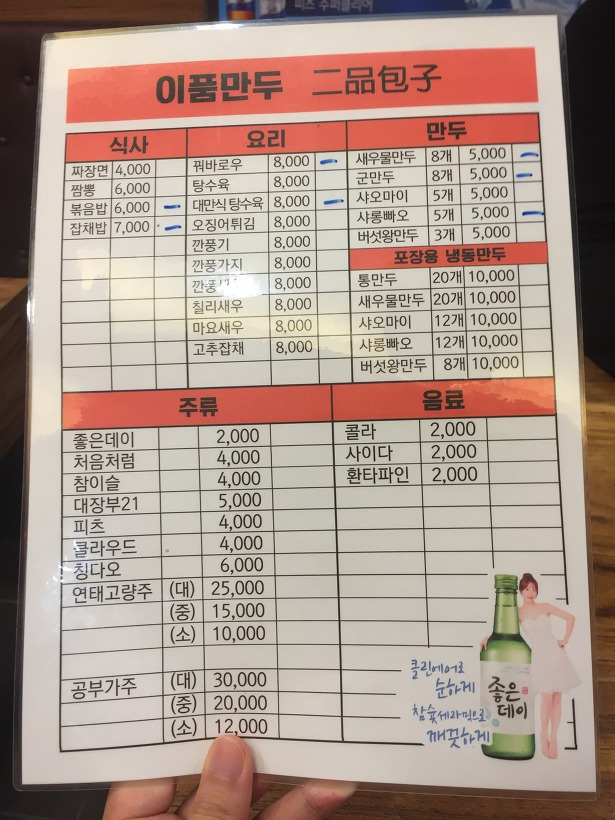 피츠 수퍼클리어
이품만두 二品包子
식사
짜장면 4,000
짬뽕 6,000
볶음밥 6,000
잡채밥 7,000
요리
꿔바로우 8,000
탕수육 8,000
대만식 탕수육 8,000
오징어튀김 8,000
깐풍기 8,000
깐풍가지 8,000
깐풍 8,000
칠리새우 8,000
마요새우 8,000
고추잡채 8,000
만두
새우물만두 8개 5,000
군만두 8개 5,000
샤오마이 5개 5,000
샤롱빠오 5개 5,000
버섯왕만두 3개 5,000
포장용 냉동만두
통만두 20개 10,000
새우물만두 20개 10,000
샤오마이 12개 10,000
샤롱빠오 12개 10,000
버섯왕만두 8개 10,000
주류
좋은데이 2,000
처음처럼 4,000
참이슬 4,000
대장부21 5,000
피츠 4,000
클라우드 4,000
칭다오 6,000
연태고량주 (대) 25,000
(중) 15,000
(소) 10,000
공부가주 (대) 30,000
(중) 20,000
(소) 12,000
음료
콜라 2,000
사이다 2,000
환타파인 2,000
클린에어로
순하게
참숯세라믹으로
깨끗하게
좋은
데이